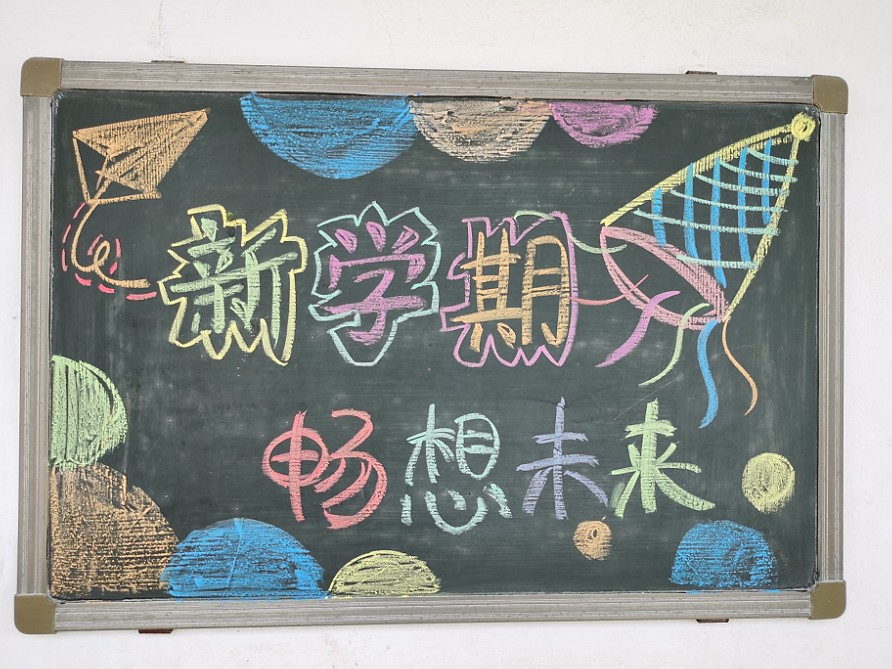 新学期
畅想未来